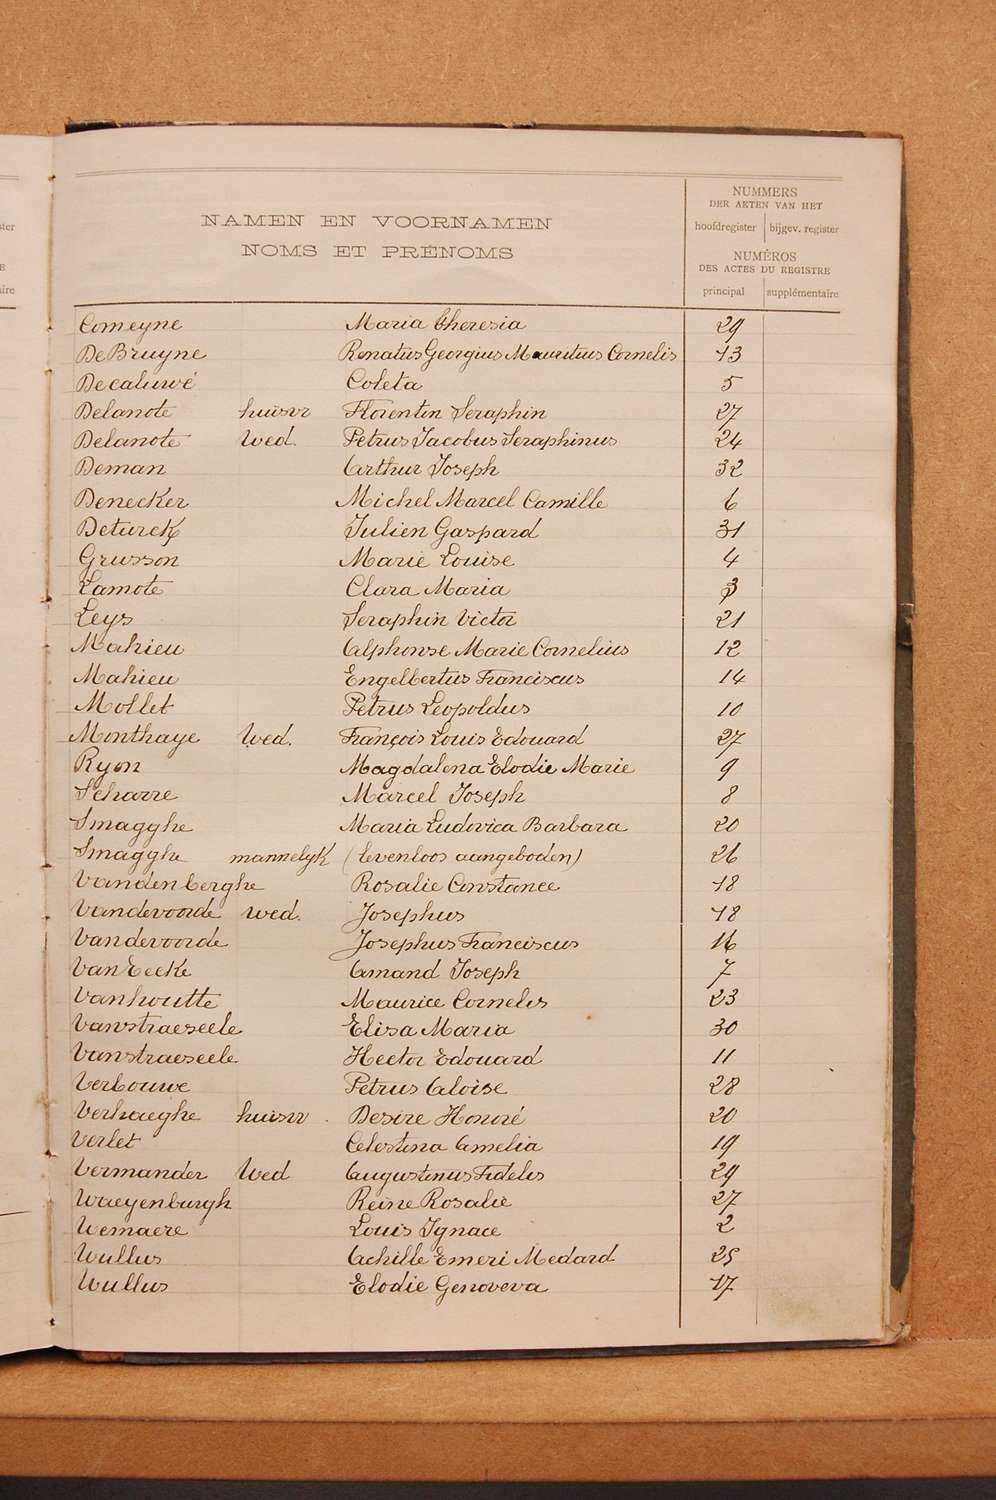 NAMEN EN VOORNAMEN
NOMS ET PRÉNOMS
NUMMERS
DER AKTEN VAN HET
hoofdregister bijgev. register
NUMÉROS
DES ACTES DU REGISTRE
principal supplémentaire
Comeyne Maria Theresia 29
De Bruyne Renatus Georgius Mauritius Cornelis 13
Decaluwé Coleta 5
Delanote huisvr Florentin Seraphin 27
Delanote Wed. Petrus Jacobus Seraphinus 24
Deman Arthur Joseph 32
Denecker Michel Marcel Camille 6
Deturck Julien Gaspard 31
Grusson Marie Louise 4
Lamote Clara Maria 3
Leys Seraphin Victor 21
Mahieu Alphonse Marie Cornelius 12
Mahieu Engelbertus Franciscus 14
Mollet Petrus Leopoldus 10
Monthaye Wed. François Louis Edouard 27
Ryon Magdalena Elodie Marie 9
Scharre Marcel Joseph 8
Smagghe Maria Ludovica Barbara 20
Smagghe mannelyk (levenloos aangeboden) 26
Vandenberghe Rosalie Constance 18
Vandevoorde wed. Josephus 18
Vandevoorde Josephus Franciscus 16
Van Eecke Amand Joseph 7
Vanhoutte Maurice Cornelis 23
Vanstraeseele Elisa Maria 30
Vanstraeseele Hector Edouard 11
Verbouwe Petrus Aloise 28
Verhaeghe huisvr. Desire Honoré 20
Verlet Celestina Amelia 19
Vermander Wed Augustinus Fidelis 29
Waeyenburgh Reine Rosalie 27
Wemaere Louis Ignace 2
Wullus Achille Emeri Medard 25
Wullus Elodie Genoveva 17